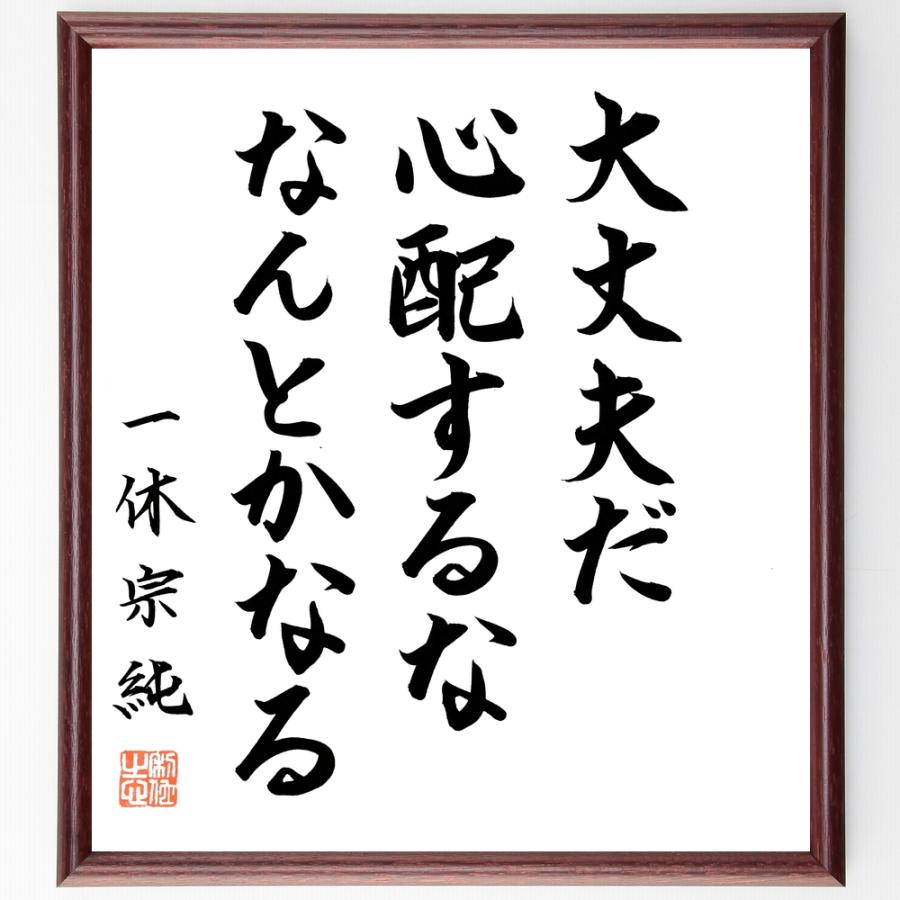 大丈夫だ
心配するな
なんとかなる
一休宗純